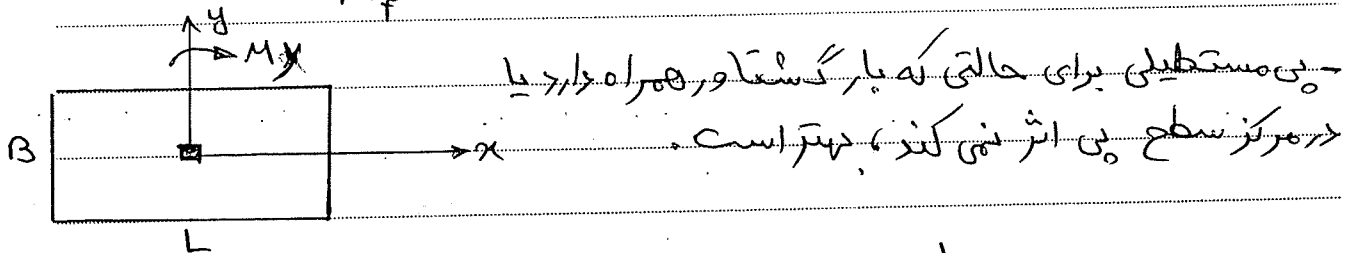 f
y
My
- پی مستطیلی برای حالتی که بار گشتاور همراه دارد یا
در مرکز سطح پی اثر نمی کند، بهتر است.
B
x
L